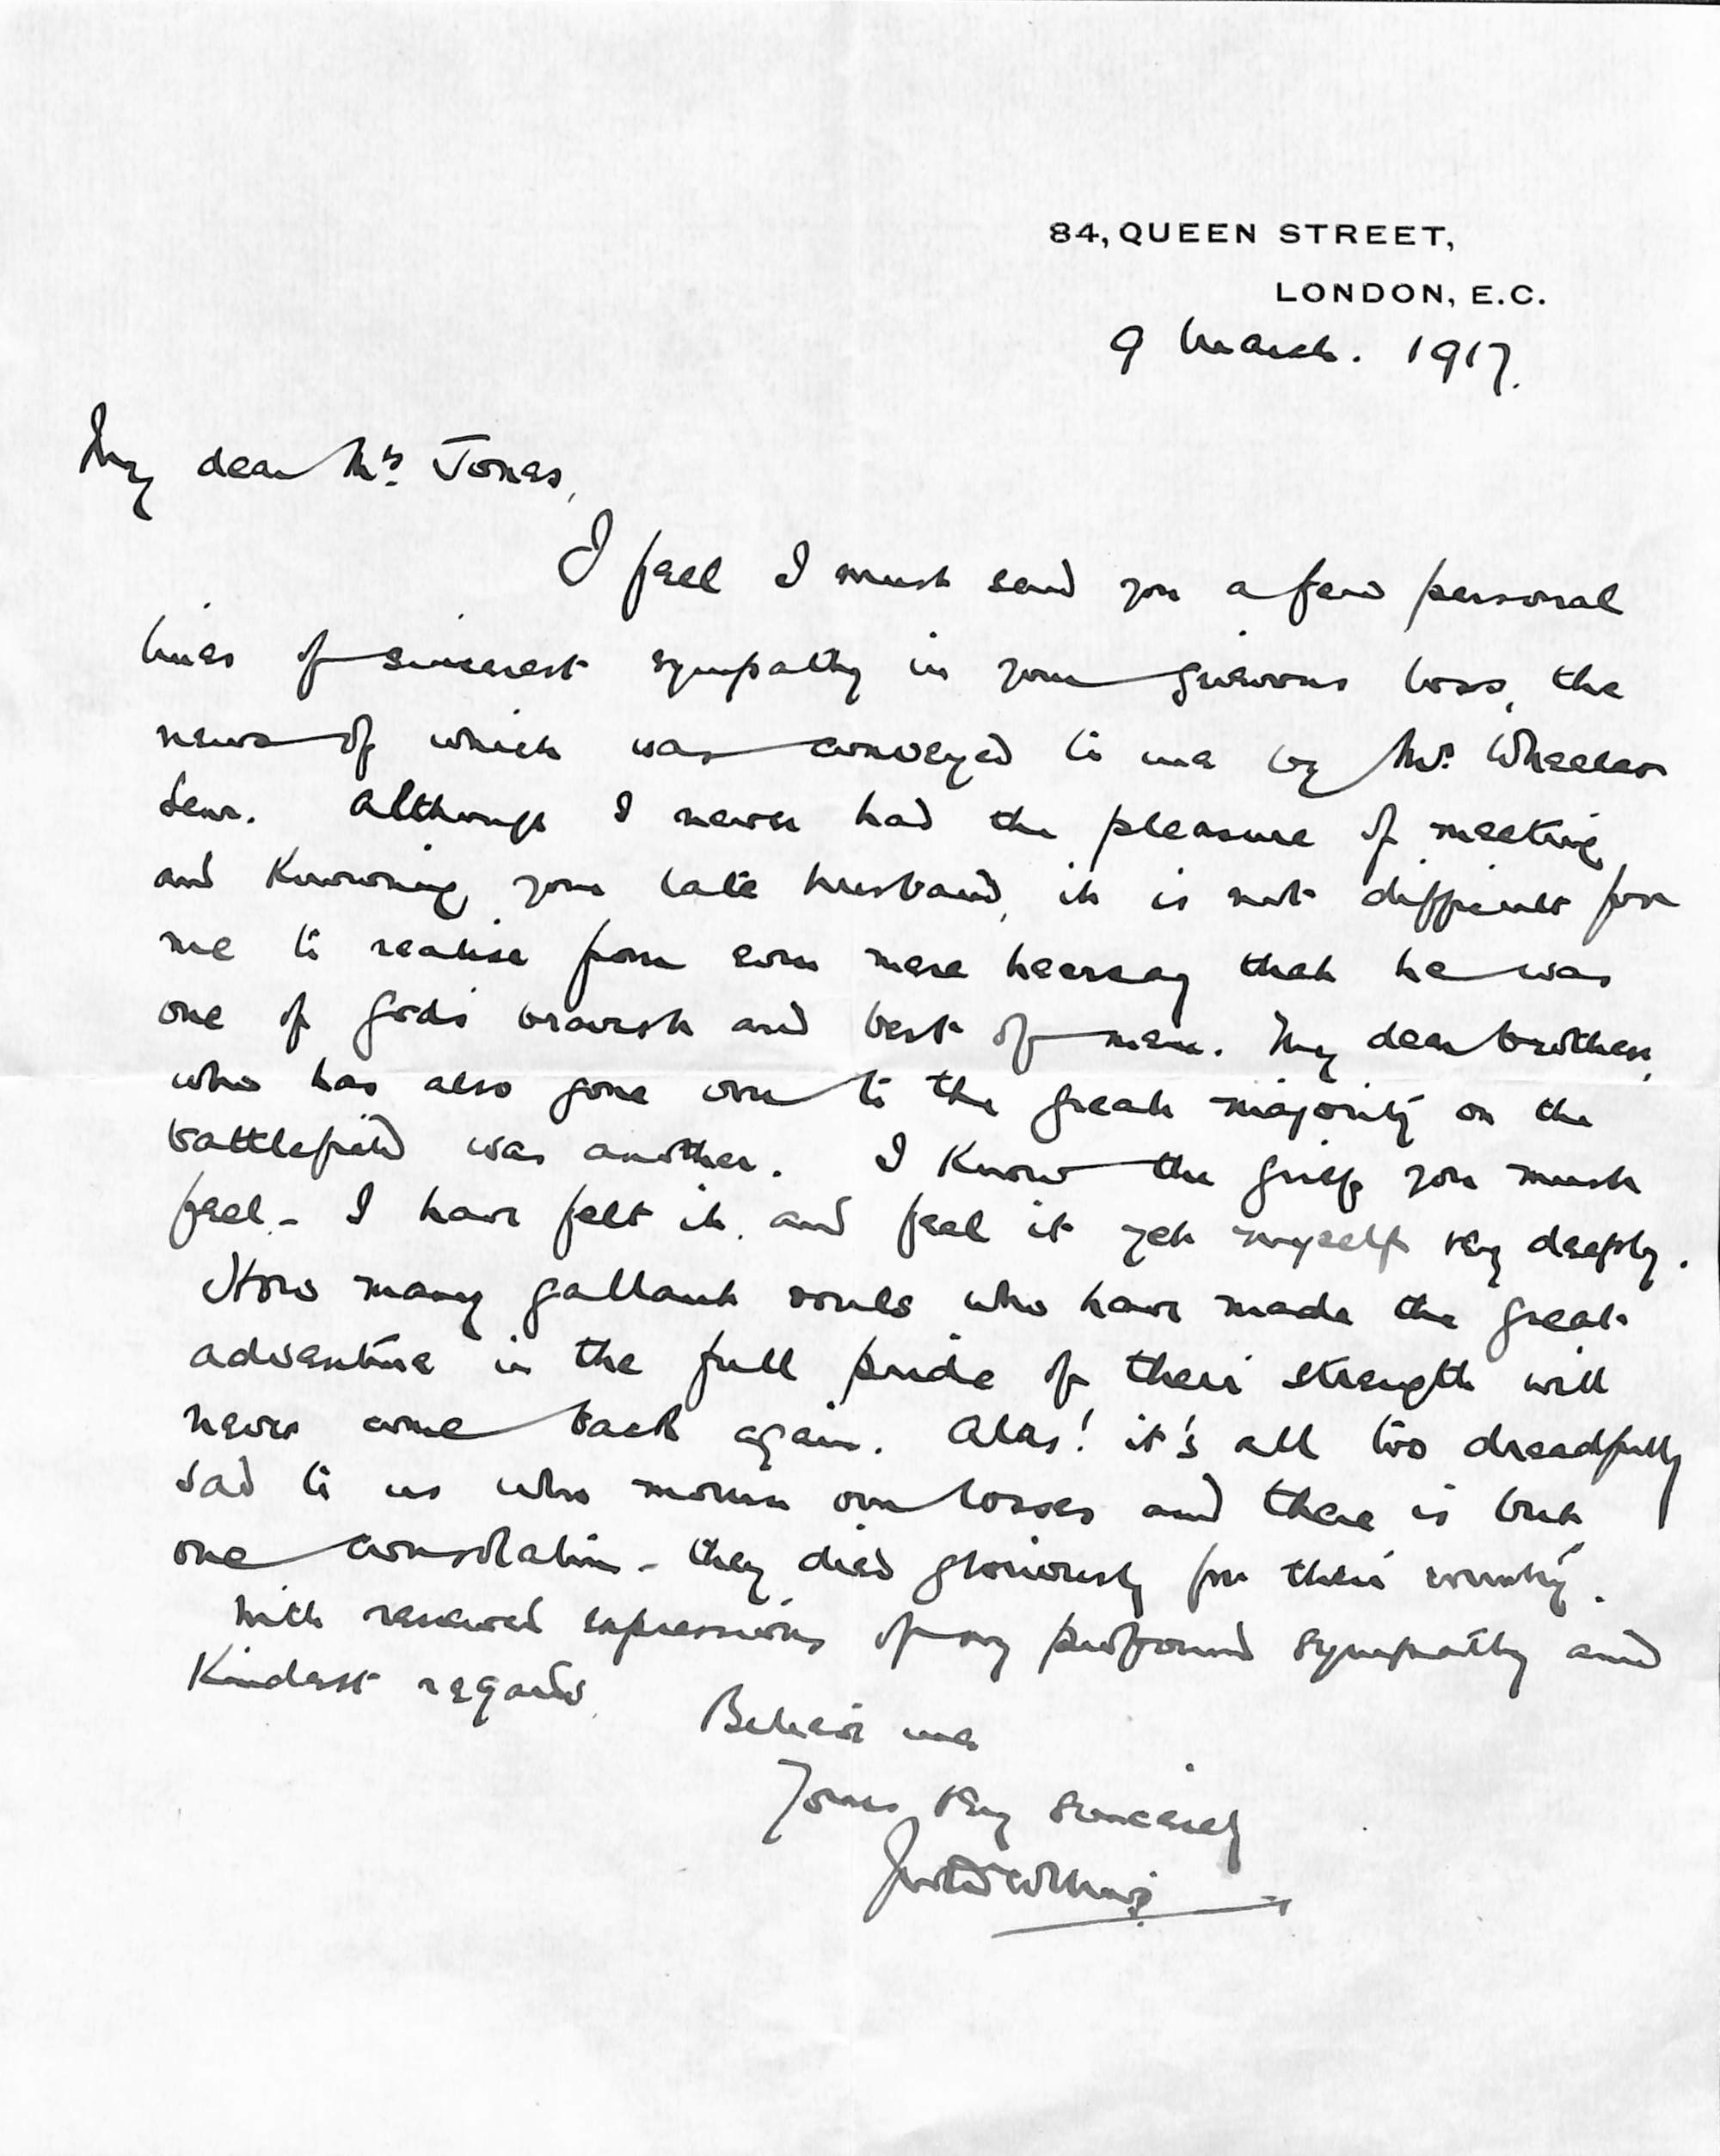 84, QUEEN STREET,
LONDON, E.C.
9 March. 1917.
My dear Mrs. Jones,
I feel I must send you a few personal
lines of sincerest sympathy in your grievous loss, the
news of which was conveyed to me by Mr. Wheeler
Senr. Although I never had the pleasure of meeting
and knowing your late husband, it is not difficult for
me to realise from even mere hearsay that he was
one of God's bravest and best of men. My dear brother,
who has also gone over to the great majority on the
battlefield was another. I know the grief you must
feel - I have felt it, and feel it yet myself very deeply.
How many gallant souls who have made the great
adventure in the full pride of their strength will
never come back again. Alas! it's all too dreadfully
sad to us who mourn our losses and there is but
one consolation - they died gloriously for their country.
With renewed expressions of my profound sympathy and
Kindest regards,
Believe me
Yours very sincerely